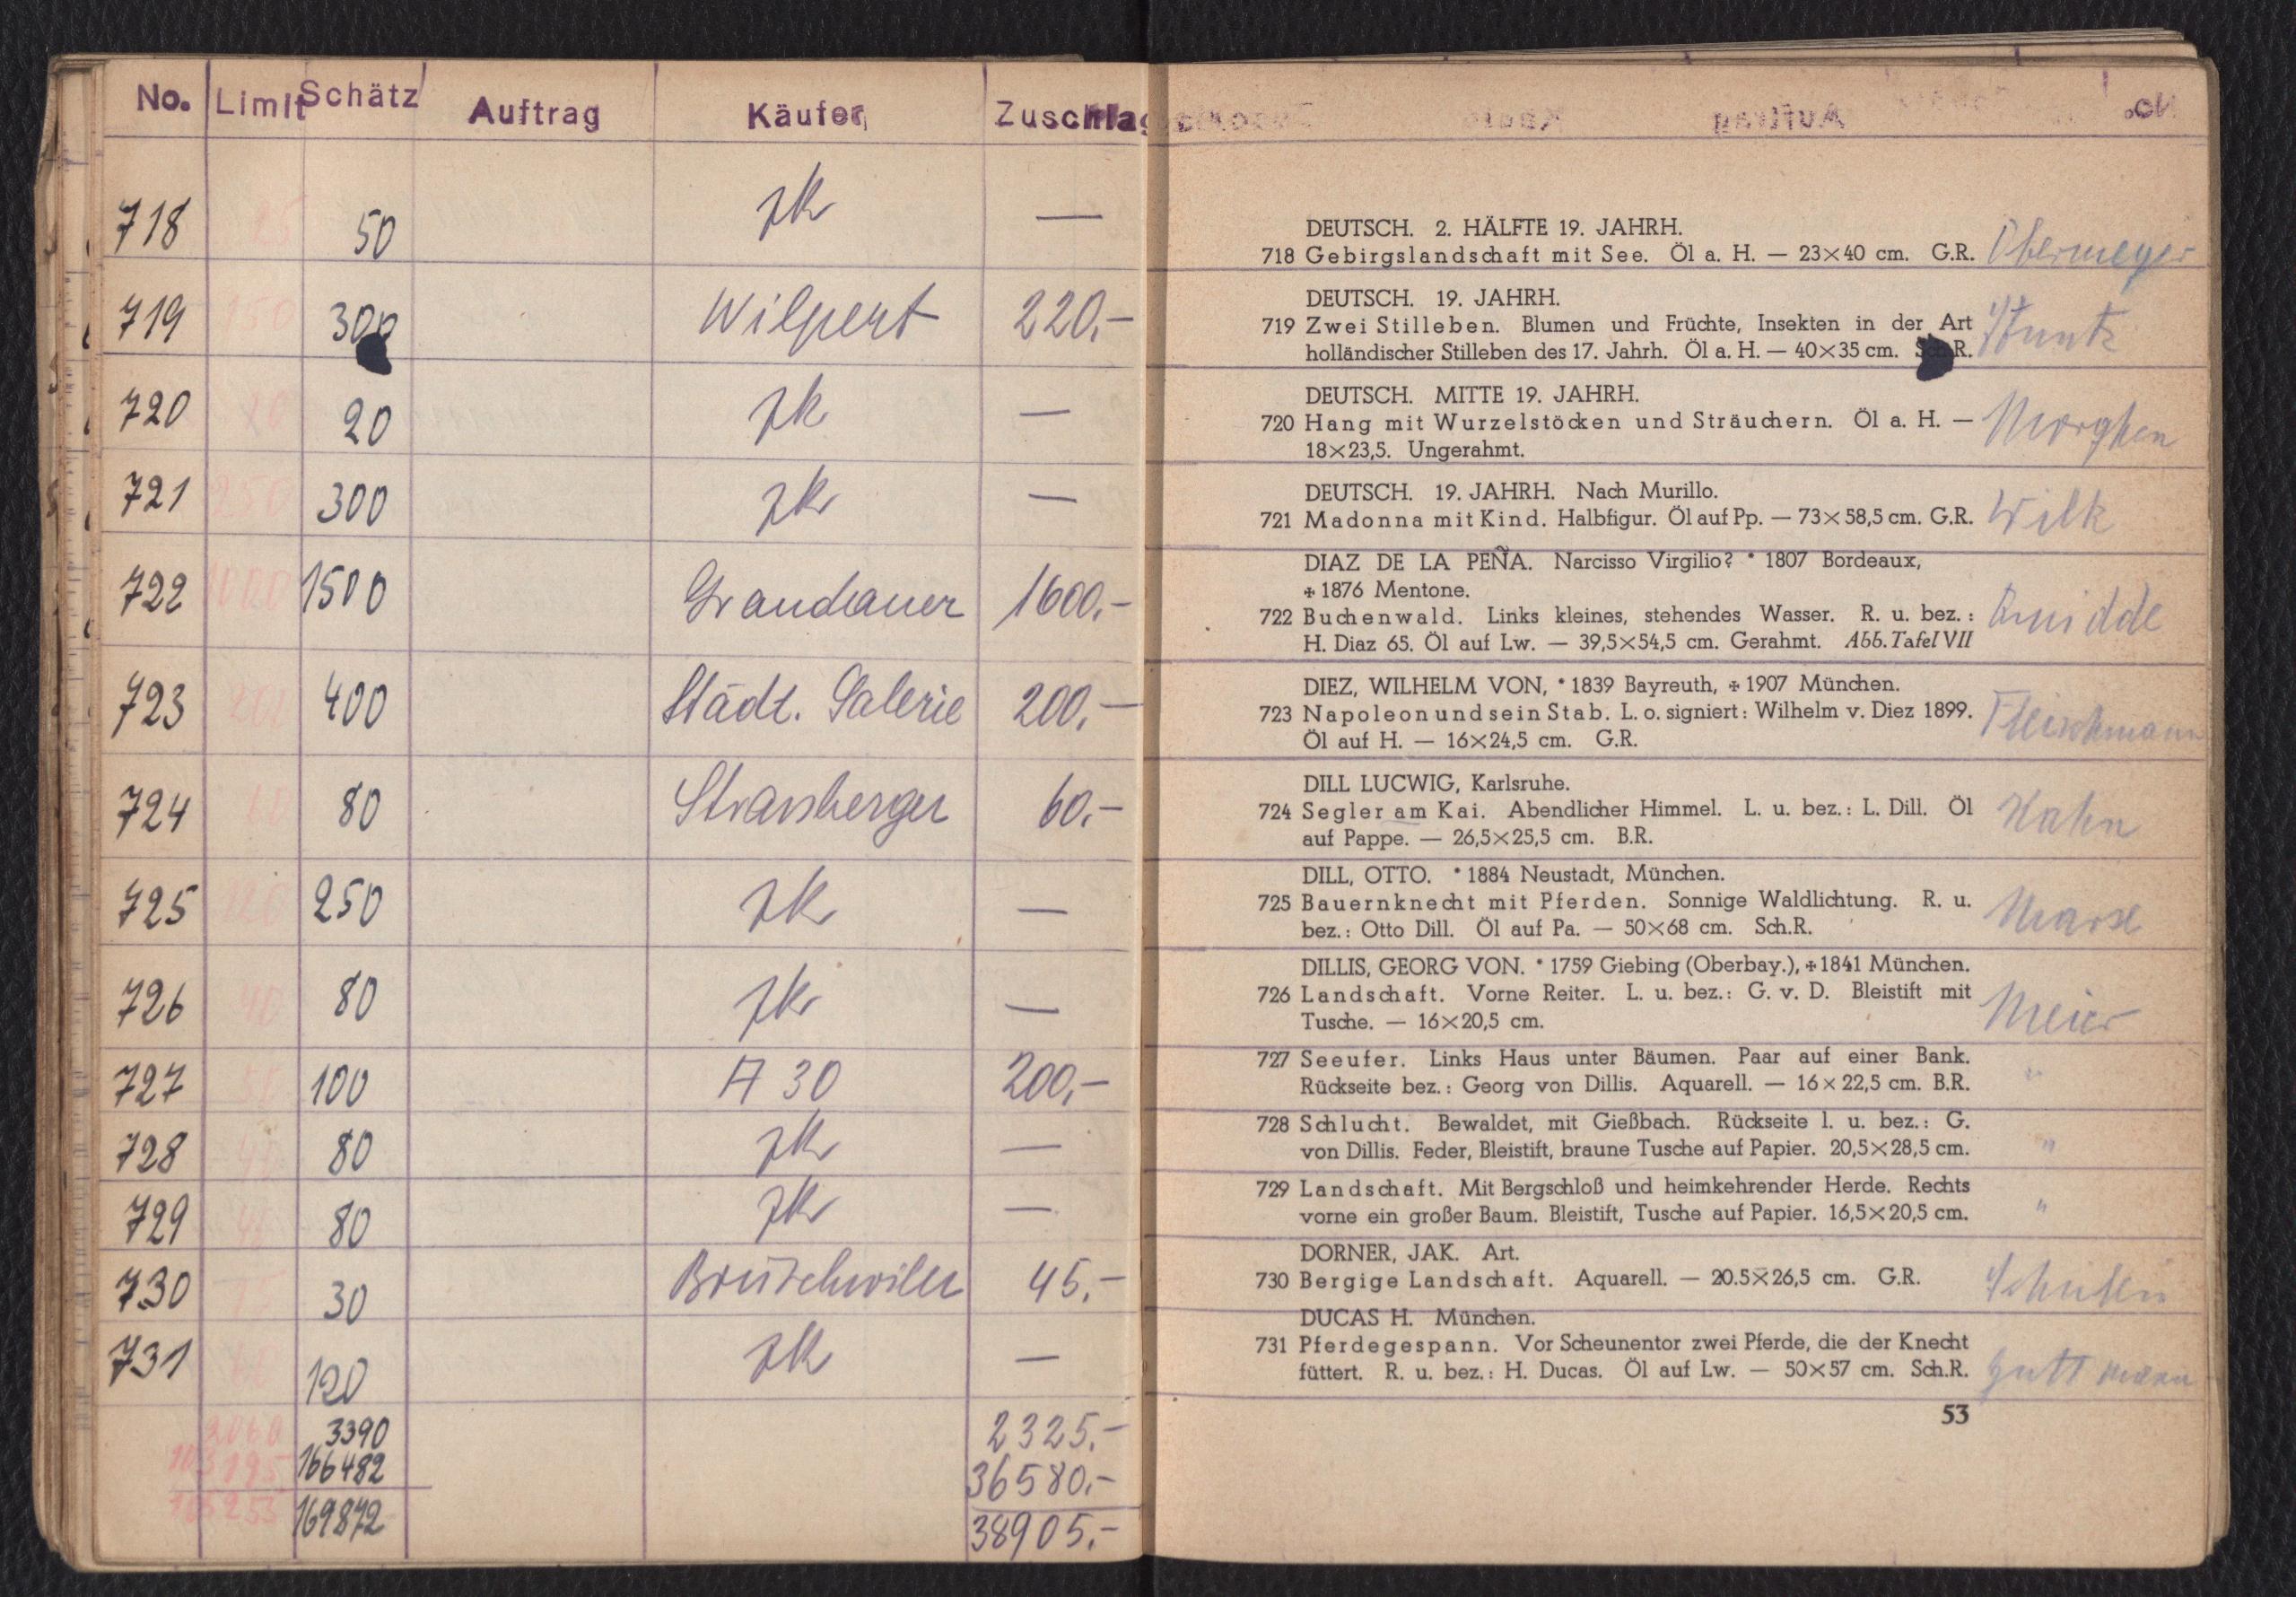 No. Limit Schätz Auftrag Käufer Zuschlag
718 25 50 zk —
719 150 300 Wilpert 220,-
720 20 zk —
721 250 300 zk —
722 1000 1500 Grandauer 1600,-
723 400 Städt. Galerie 200,-
724 60 80 Strassberger 60,-
725 120 250 zk —
726 40 80 zk —
727 50 100 A 30 200,-
728 80 zk —
729 80 zk —
730 30 45,-
731 120 zk —
3390 2325.-
166482 36580.-
169872 38905.-
DEUTSCH. 2. HÄLFTE 19. JAHRH.
718 Gebirgslandschaft mit See. Öl a. H. — 23×40 cm. G.R. Obermeyer
DEUTSCH. 19. JAHRH.
719 Zwei Stilleben. Blumen und Früchte, Insekten in der Art
holländischer Stilleben des 17. Jahrh. Öl a. H. — 40×35 cm. Sch.R.
DEUTSCH. MITTE 19. JAHRH.
720 Hang mit Wurzelstöcken und Sträuchern. Öl a. H. — Morghen
18×23,5. Ungerahmt.
DEUTSCH. 19. JAHRH. Nach Murillo.
721 Madonna mit Kind. Halbfigur. Öl auf Pp. — 73×58,5 cm. G.R. Wilk
DIAZ DE LA PEÑA. Narcisso Virgilio? * 1807 Bordeaux,
✠ 1876 Mentone.
722 Buchenwald. Links kleines, stehendes Wasser. R. u. bez.:
H. Diaz 65. Öl auf Lw. — 39,5×54,5 cm. Gerahmt. Abb. Tafel VII
DIEZ, WILHELM VON, * 1839 Bayreuth, ✠ 1907 München.
723 Napoleon und sein Stab. L. o. signiert: Wilhelm v. Diez 1899. Fleischmann
Öl auf H. — 16×24,5 cm. G.R.
DILL LUCWIG, Karlsruhe.
724 Segler am Kai. Abendlicher Himmel. L. u. bez.: L. Dill. Öl Hahn
auf Pappe. — 26,5×25,5 cm. B.R.
DILL, OTTO. * 1884 Neustadt, München.
725 Bauernknecht mit Pferden. Sonnige Waldlichtung. R. u.
bez.: Otto Dill. Öl auf Pa. — 50×68 cm. Sch.R.
DILLIS, GEORG VON. * 1759 Giebing (Oberbay.), ✠ 1841 München.
726 Landschaft. Vorne Reiter. L. u. bez.: G. v. D. Bleistift mit Meier
Tusche. — 16×20,5 cm.
727 Seeufer. Links Haus unter Bäumen. Paar auf einer Bank. "
Rückseite bez.: Georg von Dillis. Aquarell. — 16×22,5 cm. B.R.
728 Schlucht. Bewaldet, mit Gießbach. Rückseite l. u. bez.: G. "
von Dillis. Feder, Bleistift, braune Tusche auf Papier. 20,5×28,5 cm.
729 Landschaft. Mit Bergschloß und heimkehrender Herde. Rechts "
vorne ein großer Baum. Bleistift, Tusche auf Papier. 16,5×20,5 cm.
DORNER, JAK. Art.
730 Bergige Landschaft. Aquarell. — 20.5×26,5 cm. G.R.
DUCAS H. München.
731 Pferdegespann. Vor Scheunentor zwei Pferde, die der Knecht
füttert. R. u. bez.: H. Ducas. Öl auf Lw. — 50×57 cm. Sch.R. Guttmann
53